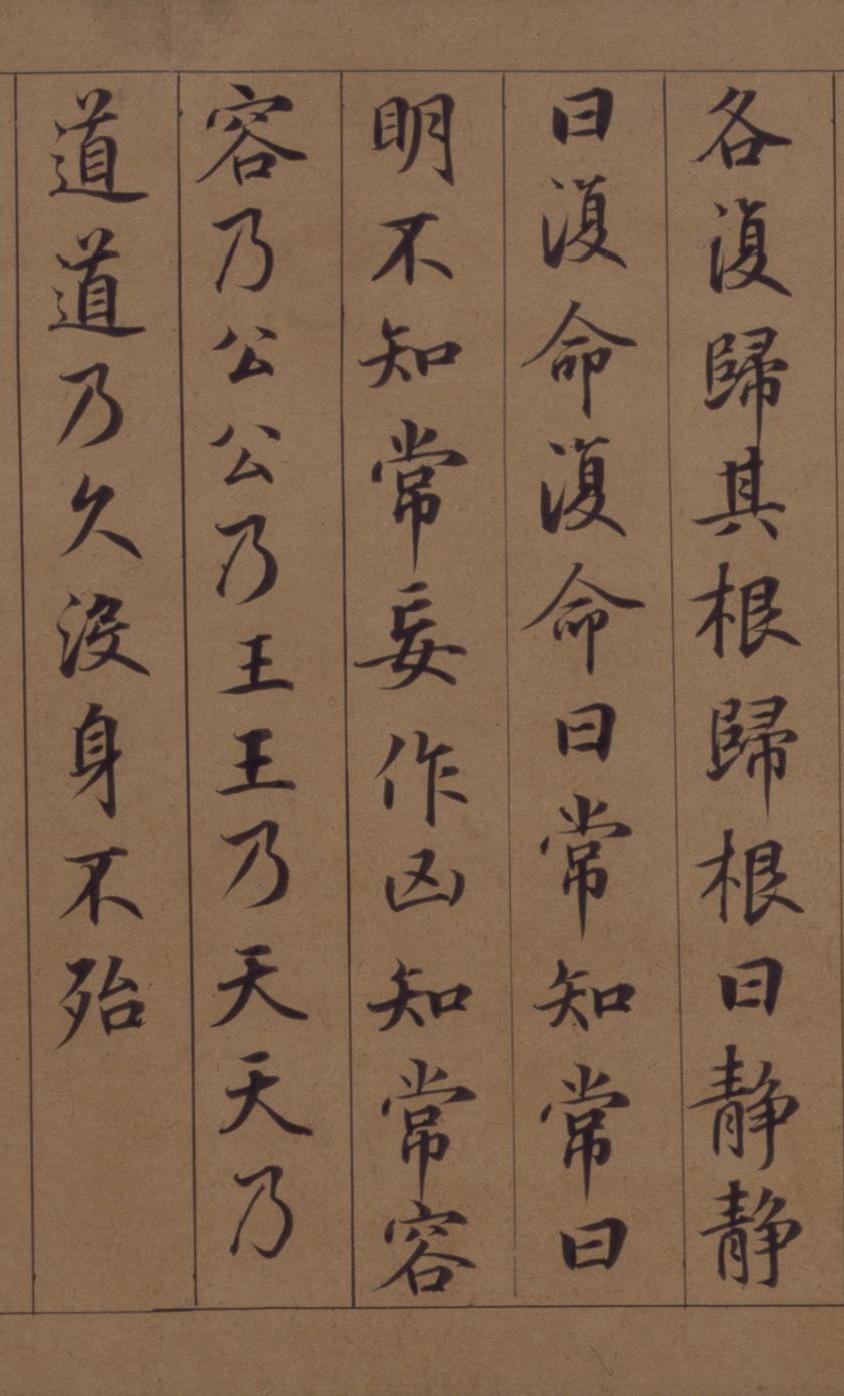 各復歸其根歸根曰靜靜
曰復命復命曰常知常曰
明不知常妄作凶知常容
容乃公公乃王王乃天天乃
道道乃久沒身不殆